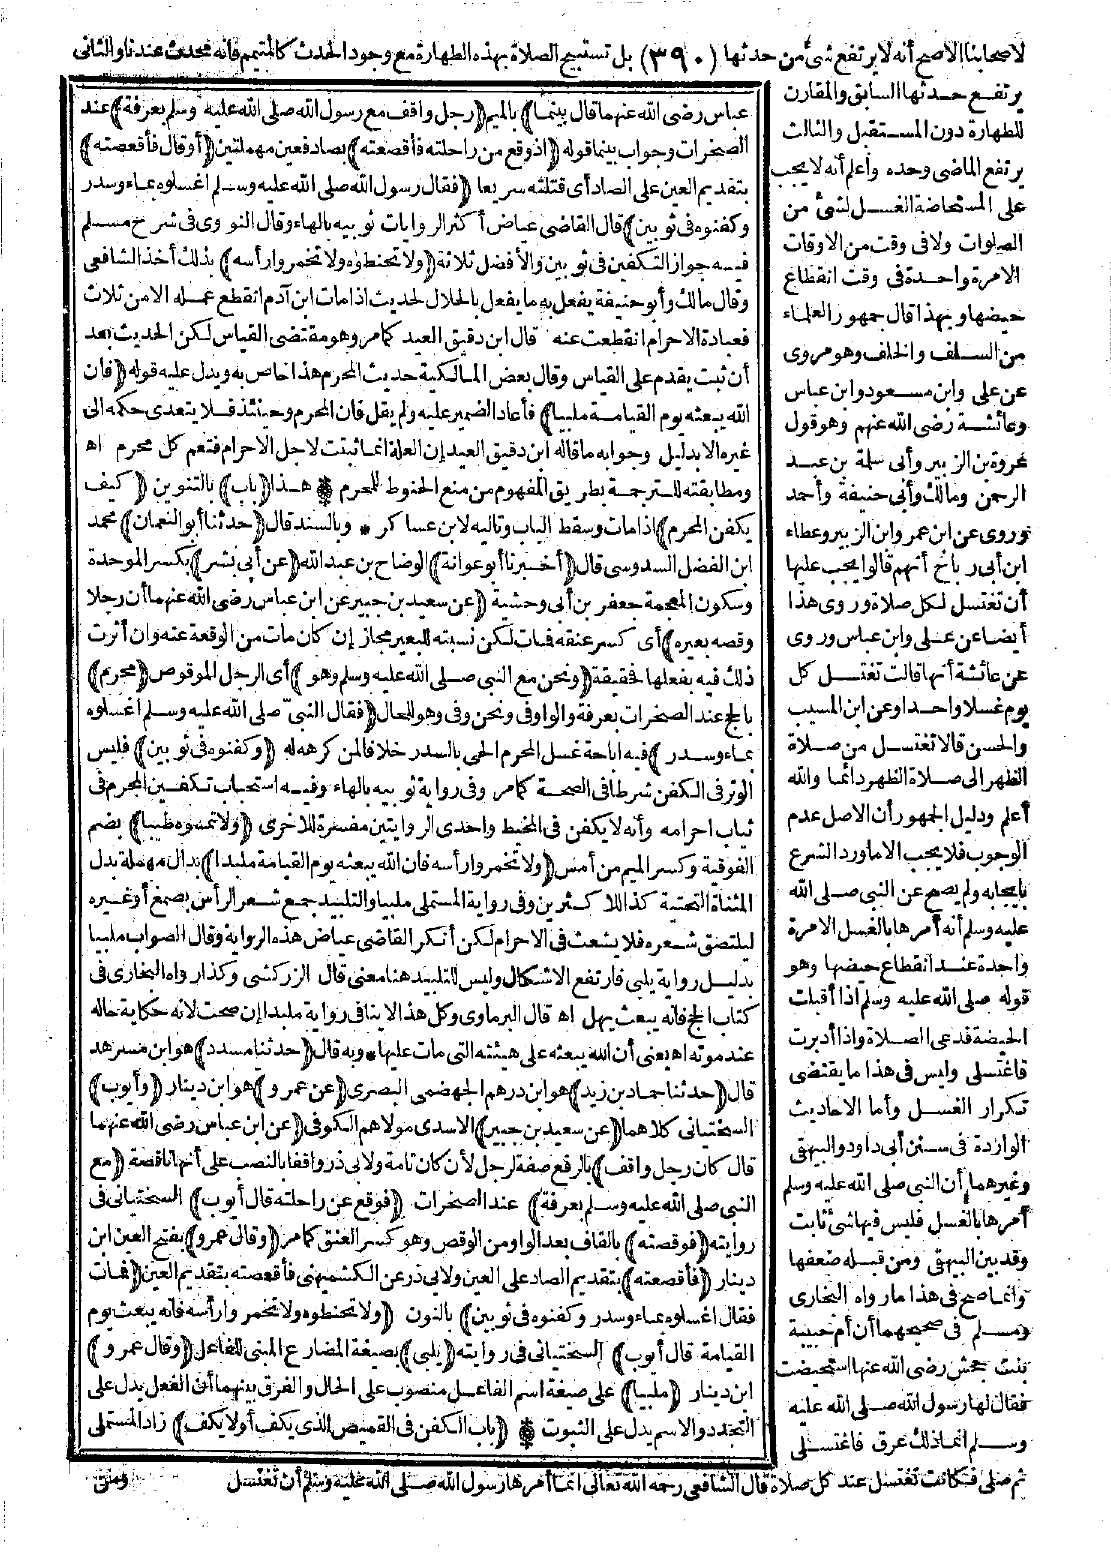 لاصحابنا الاصح أنه لا يرتفع شئ من حدثها (٣٩٠) بل تستبيح الصلاة بهذه الطهارة مع وجود الحدث كالمتيمم فانه محدث عندنا والثانى
يرتفع حدثها السابق والمقارن
للطهارة دون المستقبل والثالث
يرتفع الماضى وحده واعلم أنه لا يجب
على المستحاضة الغسل لشئ من
الصلوات ولا فى وقت من الاوقات
الا مرة واحدة فى وقت انقطاع
حيضها وبهذا قال جمهور العلماء
من السلف والخلف وهو مروى
عن على وابن مسعود وابن عباس
وعائشة رضى الله عنهم وهو قول
عروة بن الزبير وأبى سلمة بن عبد
الرحمن ومالك وأبى حنيفة وأحمد
وروى عن ابن عمر وابن الزبير وعطاء
ابن أبى رباح أنهم قالوا يجب عليها
أن تغتسل لكل صلاة وروى هذا
أيضا عن على وابن عباس وروى
عن عائشة أنها قالت تغتسل كل
يوم غسلا واحدا وعن ابن المسيب
والحسن قالا تغتسل من صلاة
الظهر الى صلاة الظهر دائما والله
أعلم ودليل الجمهور أن الاصل عدم
الوجوب فلا يجب الا ما ورد الشرع
بايجابه ولم يصح عن النبى صلى الله
عليه وسلم أنه أمرها بالغسل الا مرة
واحدة عند انقطاع حيضها وهو
قوله صلى الله عليه وسلم اذا أقبلت
الحيضة فدعى الصلاة واذا أدبرت
فاغتسلى وليس فى هذا ما يقتضى
تكرار الغسل وأما الاحاديث
الواردة فى سنن أبى داود والبيهقى
وغيرهما أن النبى صلى الله عليه وسلم
أمرها بالغسل فليس فيها شئ ثابت
وقد بين البيهقى ومن قبله ضعفها
وانما صح فى هذا ما رواه البخارى
ومسلم فى صحيحهما أن أم حبيبة
بنت جحش رضى الله عنها استحيضت
فقال لها رسول الله صلى الله عليه
وسلم انما ذلك عرق فاغتسلى
ثم صلى فكانت تغتسل عند كل صلاة قال الشافعى رحمه الله تعالى انما أمرها رسول الله صلى الله عليه وسلم أن تغتسل
عباس رضى الله عنهما قال بينما) بالميم (رجل واقف مع رسول الله صلى الله عليه وسلم بعرفة) عند
الصخرات وجواب بينما قوله (اذ وقع من راحلته فأقصعته) بصاد فعين مهملتين (أو قال فأقعصته)
بتقديم العين على الصاد أى قتلته سريعا (فقال رسول الله صلى الله عليه وسلم اغسلوه بماء وسدر
وكفنوه فى ثوبين) قال القاضى عياض أكثر الروايات ثوبيه بالهاء وقال النووى فى شرح مسلم
فيه جواز التكفين فى ثوبين والأفضل ثلاثة (ولا تحنطوه ولا تخمروا رأسه) بذلك أخذ الشافعى
وقال مالك وأبو حنيفة يفعل به ما يفعل بالحلال لحديث اذا مات ابن آدم انقطع عمله الا من ثلاث
فعبادة الاحرام انقطعت عنه قال ابن دقيق العيد كما مر وهو مقتضى القياس لكن الحديث بعد
أن ثبت يقدم على القياس وقال بعض المالكية حديث المحرم هذا خاص به ويدل عليه قوله (فان
الله يبعثه يوم القيامة ملبيا) فأعاد الضمير عليه ولم يقل فان المحرم وحينئذ فلا يتعدى حكمه الى
غيره الا بدليل وجوابه ما قاله ابن دقيق العيد إن العلة انما ثبتت لاجل الاحرام فتعم كل محرم اه
ومطابقته للترجمة بطريق المفهوم من منع الحنوط للمحرم * هذا (باب) بالتنوين (كيف
يكفن المحرم) اذا مات وسقط الباب وتاليه لابن عساكر * وبالسند قال (حدثنا أبو النعمان) محمد
ابن الفضل السدوسى قال (أخبرنا أبو عوانة) الوضاح بن عبد الله (عن أبى بشر) بكسر الموحدة
وسكون المعجمة جعفر بن أبى وحشية (عن سعيد بن جبير عن ابن عباس رضى الله عنهما أن رجلا
وقصه بعيره) أى كسر عنقه فمات لكن نسبته للبعير مجاز إن كان مات من الوقعة عنه وان أثرت
ذلك فيه بفعلها فحقيقة (ونحن مع النبى صلى الله عليه وسلم وهو) أى الرجل الموقوص (محرم)
بالحج عند الصخرات بعرفة والواو فى ونحن وفى وهو للحال (فقال النبىّ صلى الله عليه وسلم اغسلوه
بماء وسدر) فيه اباحة غسل المحرم الحى بالسدر خلافا لمن كرهه له (وكفنوه فى ثوبين) فليس
الوتر فى الكفن شرطا فى الصحة كما مر وفى رواية ثوبيه بالهاء وفيه استحباب تكفين المحرم فى
ثياب احرامه وأنه لا يكفن فى المخيط واحدى الروايتين مفسرة للاخرى (ولا تمسوه طيبا) بضم
الفوقية وكسر الميم من أمس (ولا تخمروا رأسه فان الله يبعثه يوم القيامة ملبدا) بدال مهملة بدل
المثناة التحتية كذا للاكثرين وفى رواية المستملى ملبيا والتلبيد جمع شعر الرأس بصمغ أو غيره
ليلتصق شعره فلا يشعث فى الاحرام لكن أنكر القاضى عياض هذه الرواية وقال الصواب ملبيا
بدليل رواية يلبى فارتفع الاشكال وليس للتلبيد هنا معنى قال الزركشى وكذا رواه البخارى فى
كتاب الحج فانه يبعث يهل اه قال البرماوى وكل هذا لا ينافى رواية ملبدا إن صحت لانه حكاية حاله
عند موته اه يعنى أن الله يبعثه على هيئته التى مات عليها * وبه قال (حدثنا مسدد) هو ابن مسرهد
قال (حدثنا حماد بن زيد) هو ابن درهم الجهضمى البصرى (عن عمرو) هو ابن دينار (وأيوب)
السختيانى كلاهما (عن سعيد بن جبير) الاسدى مولاهم الكوفى (عن ابن عباس رضى الله عنهما
قال كان رجل واقف) بالرفع صفة لرجل لأن كان تامة ولابى ذر واقفا بالنصب على أنها ناقصة (مع
النبى صلى الله عليه وسلم بعرفة) عند الصخرات (فوقع عن راحلته قال أيوب) السختيانى فى
روايته (فوقصته) بالقاف بعد الواو من الوقص وهو كسر العنق كما مر (وقال عمرو) بفتح العين ابن
دينار (فأقصعته) بتقديم الصاد على العين ولابى ذر عن الكشميهنى فأقعصته بتقديم العين (فمات
فقال اغسلوه بماء وسدر وكفنوه فى ثوبين) بالنون (ولا تحنطوه ولا تخمروا رأسه فانه يبعث يوم
القيامة قال أيوب) السختيانى فى روايته (يلبى) بصيغة المضارع المبنى للفاعل (وقال عمرو)
ابن دينار (ملبيا) على صيغة اسم الفاعل منصوب على الحال والفرق بينهما أن الفعل يدل على
التجدد والاسم يدل على الثبوت * (باب الكفن فى القميص الذى يكف أو لا يكف) زاد المستملى
ومن